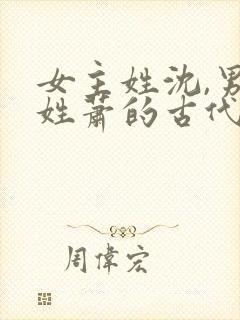 女主姓沈,男
姓萧的古代
周偉宏